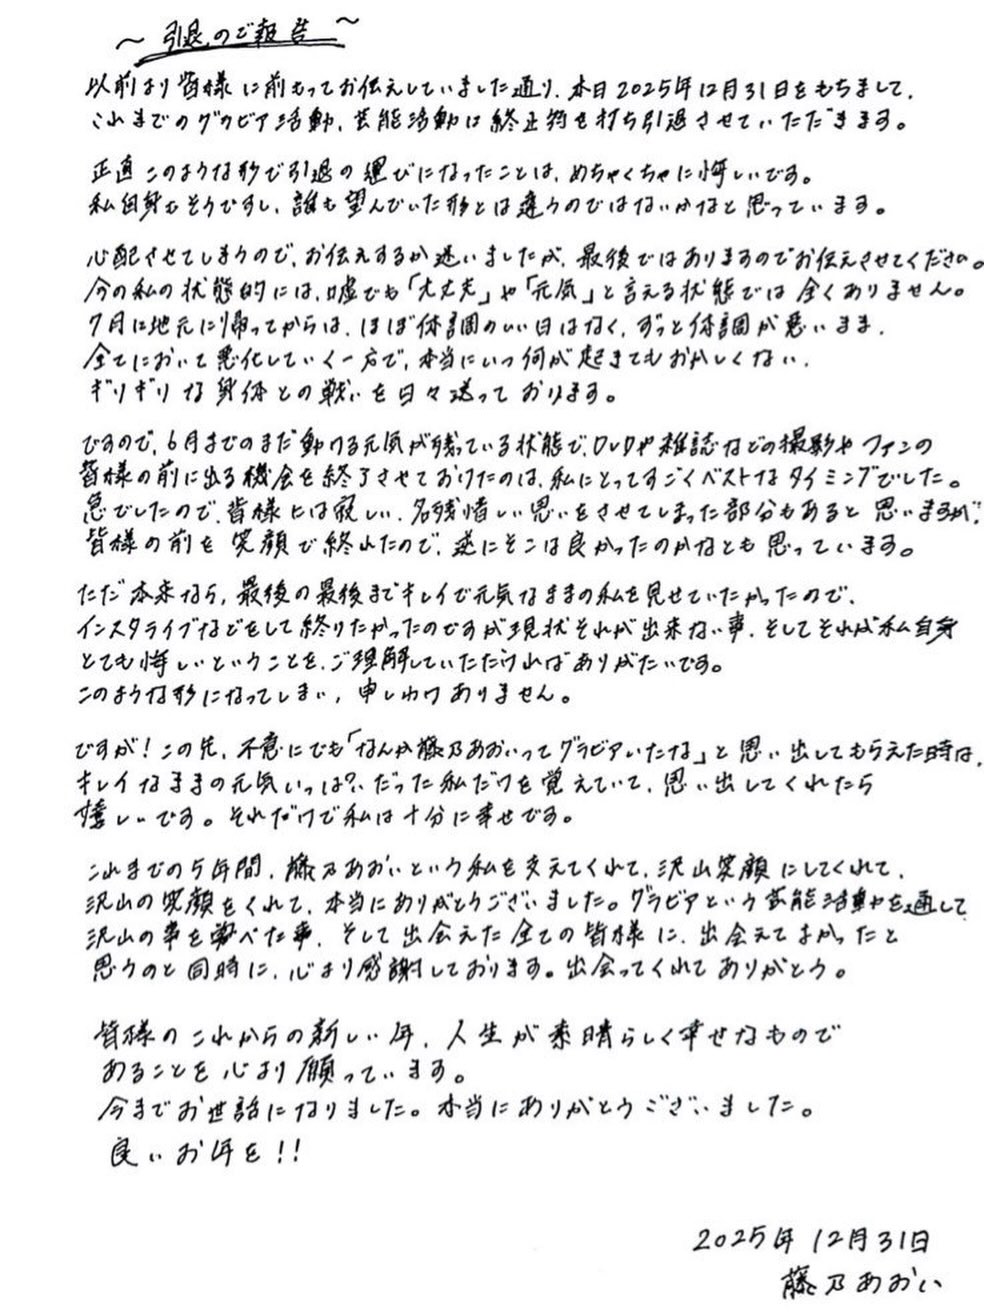 〜 引退のご報告 〜
以前より皆様に前もってお伝えしていました通り、本日2025年12月31日をもちまして、
これまでのグラビア活動、芸能活動に終止符を打ち引退させていただきます。
正直このような形で引退の運びになったことは、めちゃくちゃに悔しいです。
私自身もそうですし、誰も望んでいた形とは違うのではないかなと思っています。
心配させてしまうので、お伝えするか迷いましたが、最後ではありますのでお伝えさせてください。
今の私の状態的には、嘘でも「大丈夫」や「元気」と言える状態では全くありません。
7月に地元に帰ってからは、ほぼ体調のいい日はなく、ずっと体調が悪いまま、
全てにおいて悪化していく一方で、本当にいつ何が起きてもおかしくない、
ギリギリな身体との戦いを日々送っております。
ですので、6月までのまだ動ける元気が残っている状態で、DVDや雑誌などの撮影やファンの
皆様の前に出る機会を終了させておけたのは、私にとってすごくベストなタイミングでした。
急でしたので、皆様には寂しい、名残惜しい思いをさせてしまった部分もあると思いますが、
皆様の前を笑顔で終れたので、逆にそこは良かったのかなとも思っています。
ただ本来なら、最後の最後までキレイで元気なままの私を見せていたかったので、
インスタライブなどをして終りたかったのですが現状それが出来ない事、そしてそれが私自身
とても悔しいということを、ご理解していただければありがたいです。
このような形になってしまい、申しわけありません。
ですが！この先、不意にでも「なんか藤乃あおいってグラビアいたな」と思い出してもらえた時は、
キレイなままの元気いっぱい、だった私だけを覚えていて、思い出してくれたら
嬉しいです。それだけで私は十分に幸せです。
これまでの5年間、藤乃あおいという私を支えてくれて、沢山笑顔にしてくれて、
沢山の笑顔をくれて、本当にありがとうございました。グラビアという芸能活動を通して
沢山の事を学べた事、そして出会えた全ての皆様に、出会えてよかったと
思うのと同時に、心より感謝しております。出会ってくれてありがとう。
皆様のこれからの新しい年、人生が素晴らしく幸せなもので
あることを心より願っています。
今までお世話になりました。本当にありがとうございました。
良いお年を！！
2025年12月31日
藤乃あおい